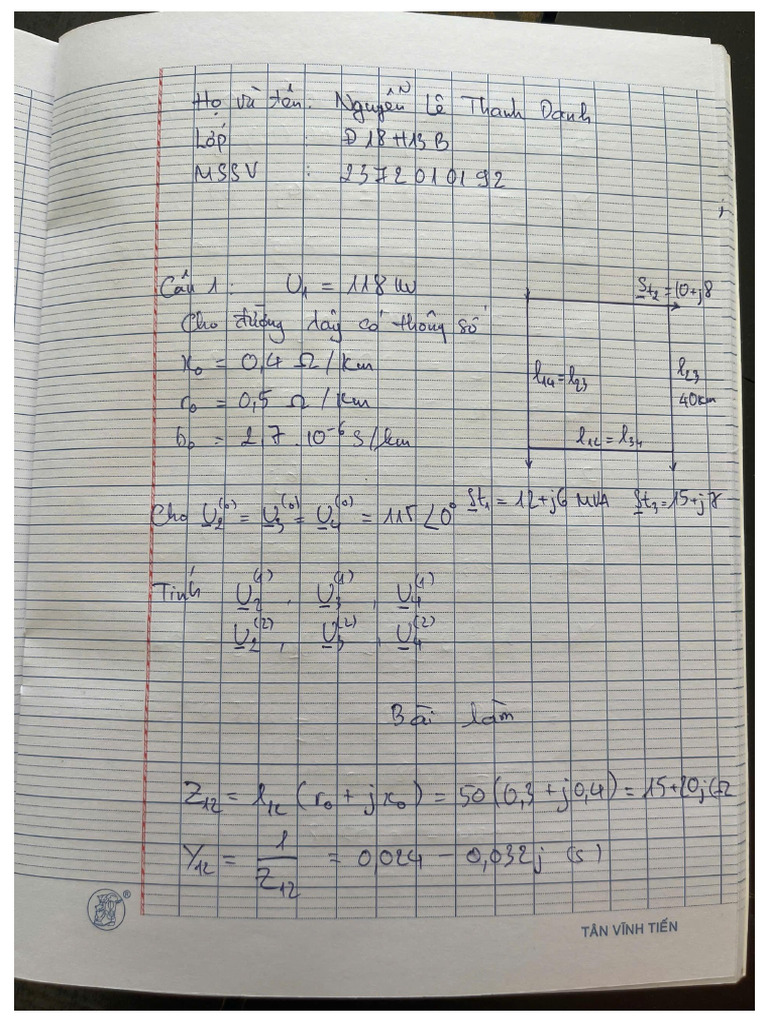 Họ và tên: Nguyễn Lê Thanh Danh
Lớp : Đ18H13B
MSSV : 2372010192
Câu 1: U₁ = 118 kV
Cho đường dây có thông số
x₀ = 0,4 Ω/km
r₀ = 0,5 Ω/km
b₀ = 2,7.10⁻⁶ S/km
St₂ = 10+j8
l₁₄ = l₂₃
l₂₃
40km
l₁₂ = l₃₄
Cho U₂⁽⁰⁾ = U₃⁽⁰⁾ = U₄⁽⁰⁾ = 115∠0°
St₁ = 12+j6 MVA St₃ = 15+j8
Tính U₂⁽¹⁾, U₃⁽¹⁾, U₄⁽¹⁾
U₂⁽²⁾, U₃⁽²⁾, U₄⁽²⁾
Bài làm
Z₁₂ = l₁₂ (r₀ + jx₀) = 50(0,3 + j0,4) = 15+20j (Ω
Y₁₂ = 1/Z₁₂ = 0,024 − 0,032j (s)
®
TÂN VĨNH TIẾN